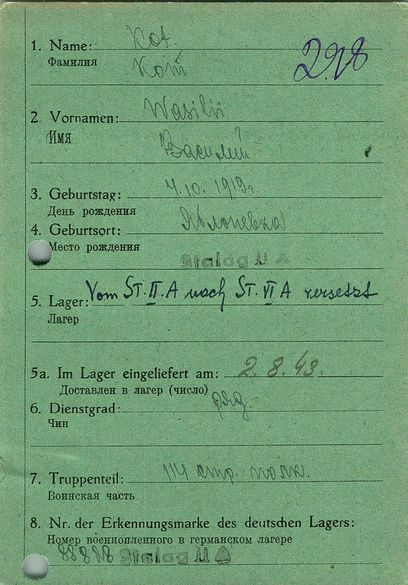 1. Name: Kot
Фамилия Кот
298
2. Vornamen: Wasilii
Имя Василий
3. Geburtstag: 4.10.1919г.
День рождения
4. Geburtsort:
Место рождения
Stalag II A
5. Lager: Vom ST. II.A nach ST. VI A versetzt
Лагер
5a. Im Lager eingeliefert am: 2.8.43.
Доставлен в лагер (число)
6. Dienstgrad: ряд.
Чин
7. Truppenteil: 114 стр. полк.
Воинская часть
8. Nr. der Erkennungsmarke des deutschen Lagers:
Номер военнопленного в германском лагере
Stalag II A